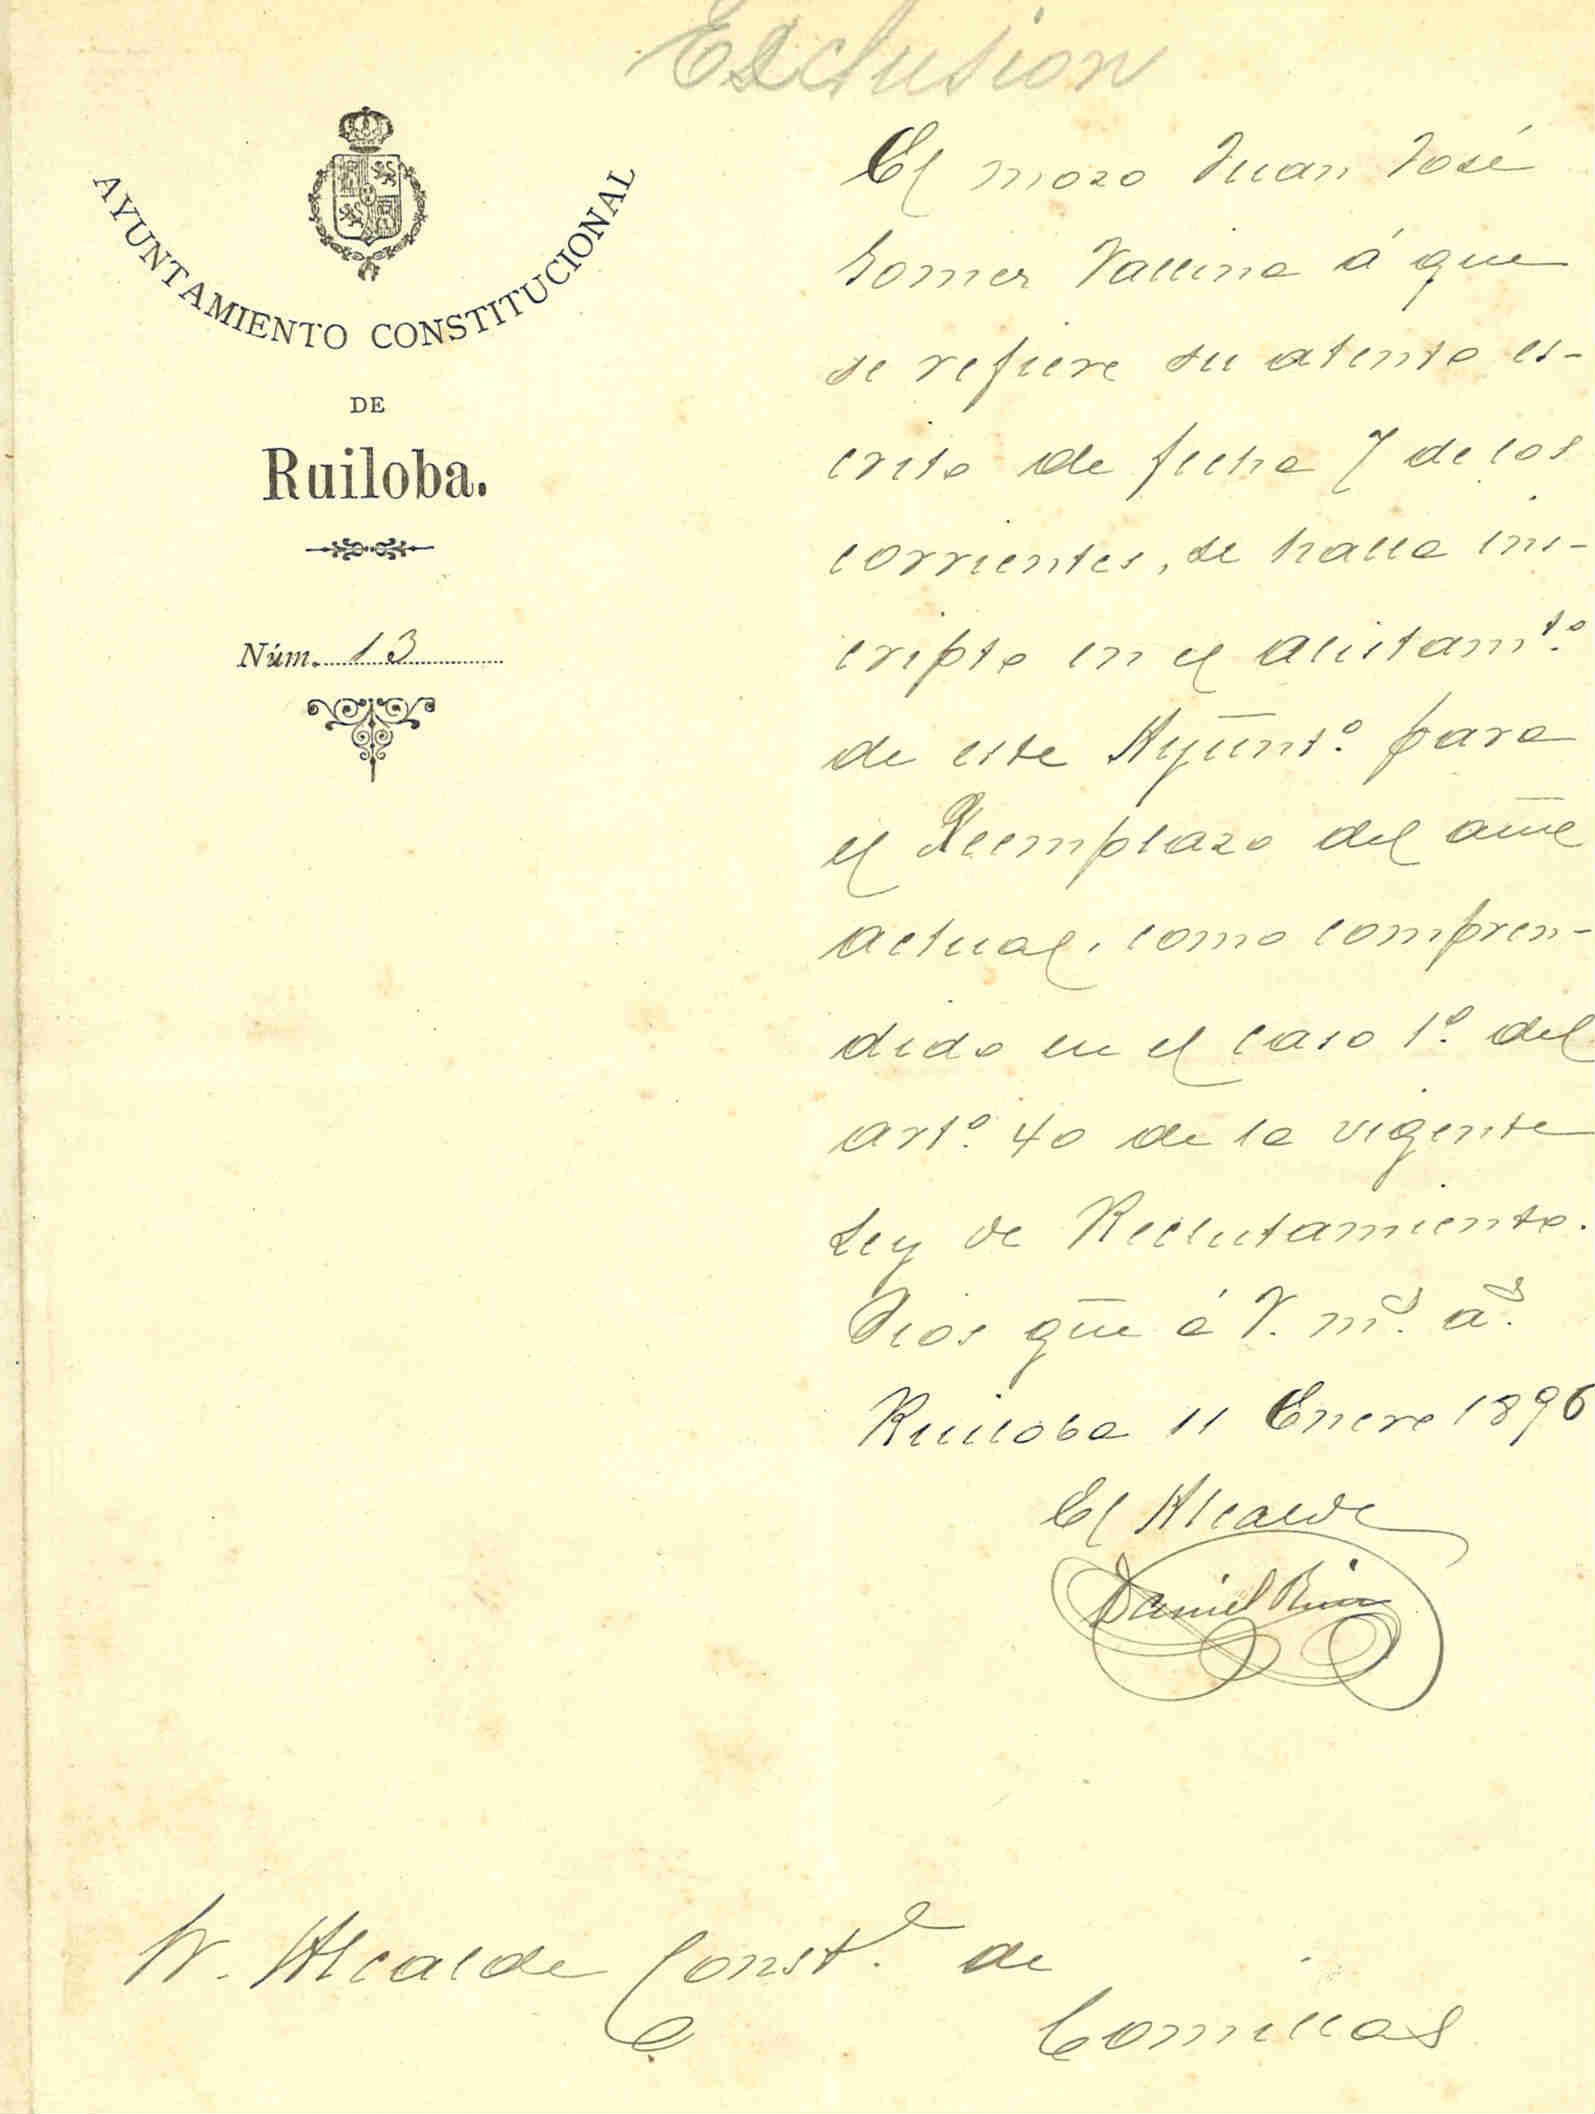 Exclusion
AYUNTAMIENTO CONSTITUCIONAL
DE
Ruiloba.
Núm. 13
El mozo Juan José
Gomez Vallina á que
se refiere su atento es-
crito de fecha 7 de los
corrientes, se halla ins-
cripto en el alistamto.
de este Ayunto. para
el Reemplazo del
actual, como compren-
dido en el caso 1º. del
artº. 40 de la vigente
Ley de Reclutamiento.
Dios gue á V. ms. as.
Ruiloba 11 Enero 1896
El Alcalde
Daniel
Sr. Alcalde Constl. de
Comillas